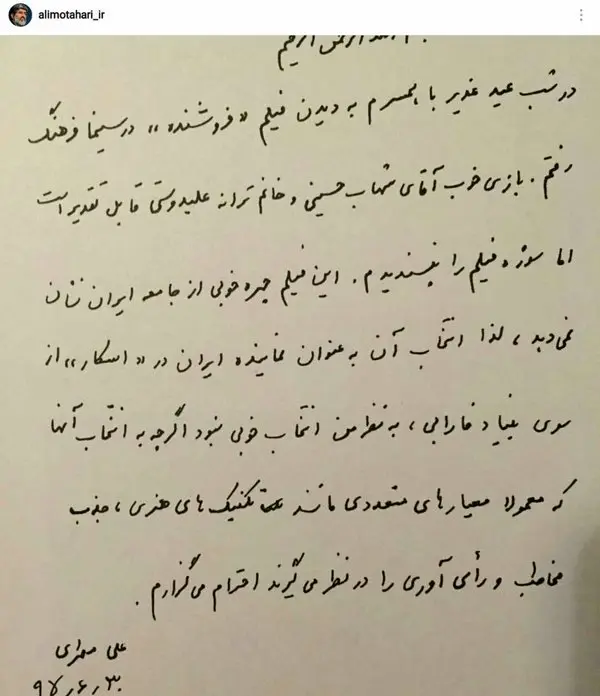 alimotahari_ir
در شب عید غدیر با همسرم به دیدن فیلم «فروشنده» در سینما فرهنگ
رفتم. بازی خوب آقای شهاب حسینی و خانم ترانه علیدوستی قابل تقدیر است
اما سوژه فیلم را نپسندیدم. این فیلم چهره خوبی از جامعه ایران نشان
نمی‌دهد، لذا انتخاب آن به عنوان نماینده ایران در «اسکار» از
سوی بنیاد فارابی، به نظر من انتخاب خوبی نبود اگرچه به انتخاب آنها
که معمولا معیارهای متعددی مانند تکنیک‌های هنری، جذب
مخاطب و رأی آوری را در نظر می‌گیرند احترام می‌گزارم.
علی مطهری